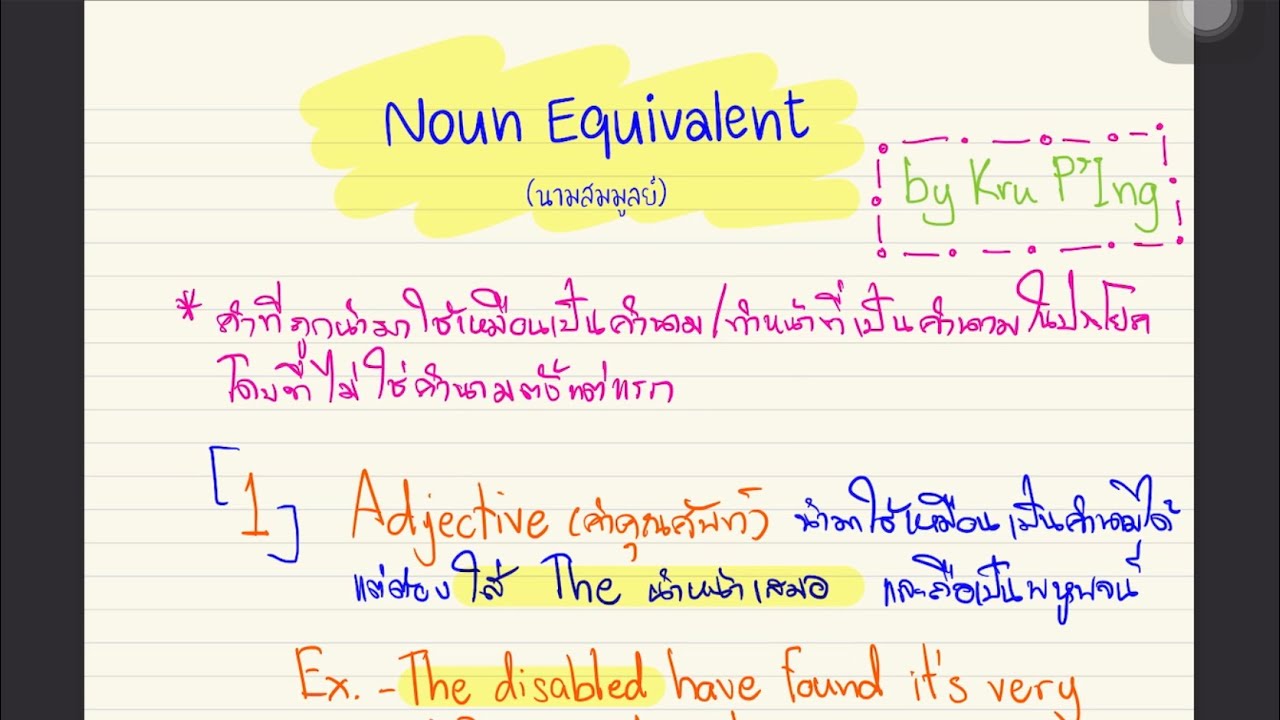 Noun Equivalent
(นามสมมูลย์)
by Kru P'Ing
* คำที่ถูกนำมาใช้เหมือนเป็นคำนาม/ทำหน้าที่เป็นคำนามในประโยค
โดยที่ไม่ใช่คำนามตั้งแต่แรก
[1] Adjective (คำคุณศัพท์) นำมาใช้เหมือนเป็นคำนามได้
แต่ต้องใส่ The นำหน้าเสมอ และถือเป็นพหูพจน์
Ex. - The disabled have found it's very